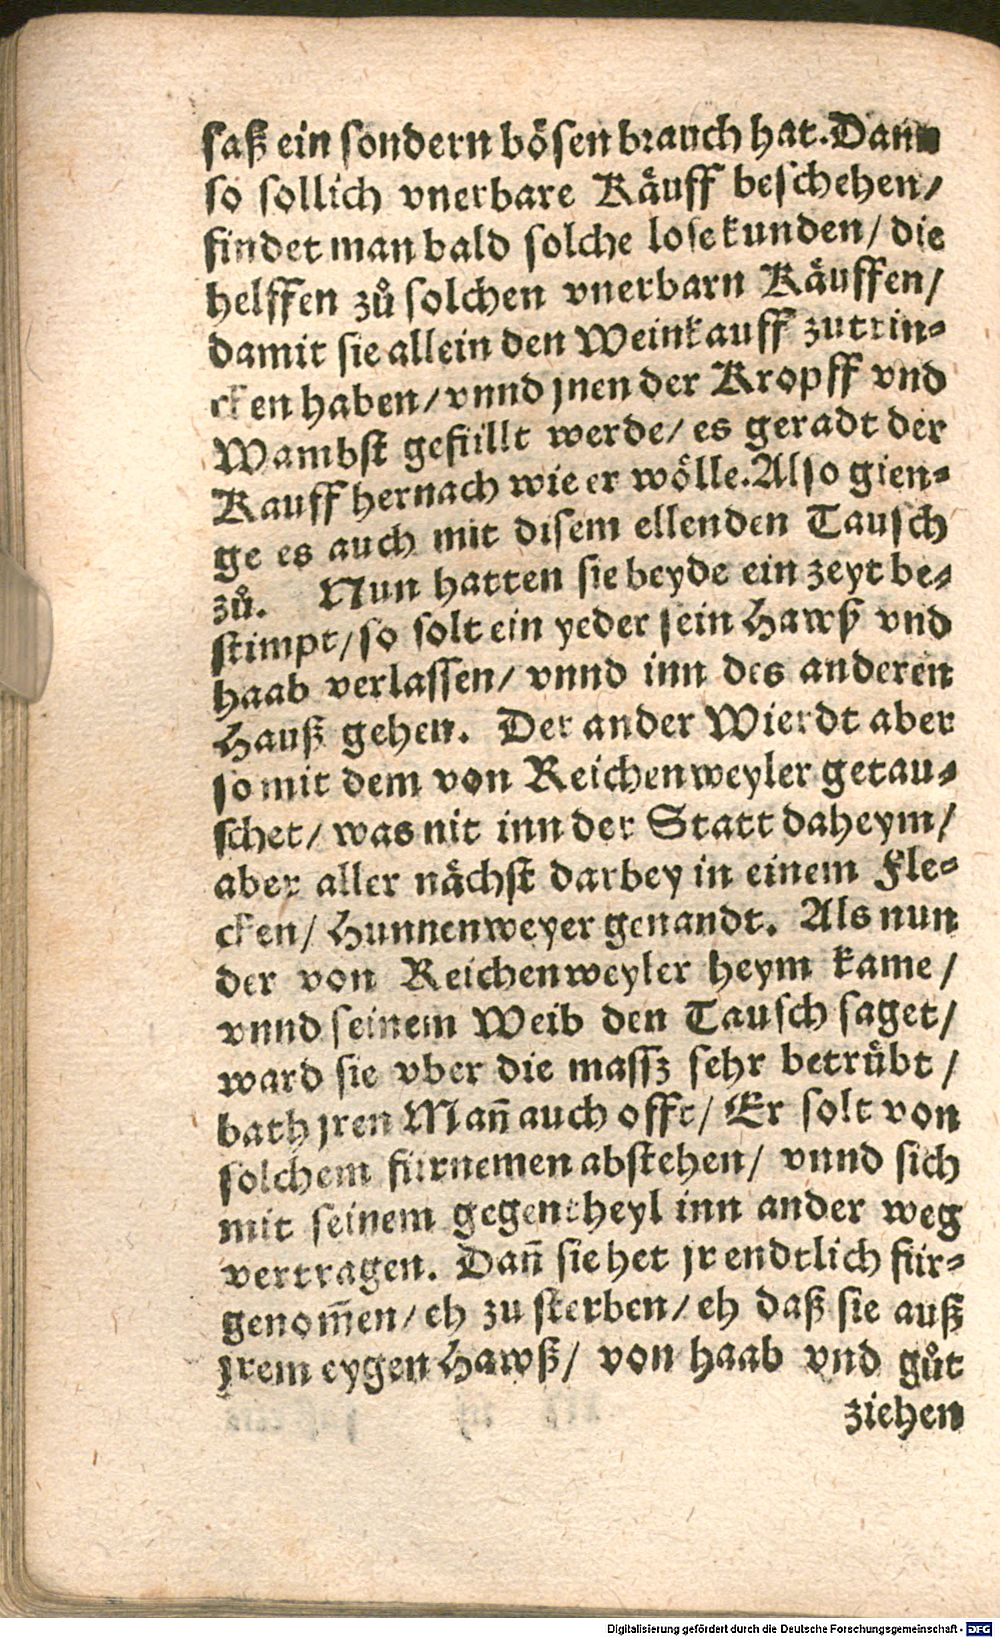 saß ein sondern bösen brauch hat. Dann
so sollich vnerbare Käuff beschehen/
findet man bald solche lose kunden/ die
helffen zů solchen vnerbarn Käuffen/
damit sie allein den Weinkauff zutrin-
cken haben/ vnnd jnen der Kropff vnd
Wambst gefüllt werde/ es geradt der
Kauff hernach wie er wölle. Also gien-
ge es auch mit disem ellenden Tausch
zů. Nun hatten sie beyde ein zeyt be-
stimpt/ so solt ein yeder sein Hawß vnd
haab verlassen/ vnnd inn des anderen
Hauß gehen. Der ander Wierdt aber
so mit dem von Reichenweyler getau-
schet/ was nit inn der Statt daheym/
aber aller nächst darbey in einem Fle-
cken/ Hunnenweyer genandt. Als nun
der von Reichenweyler heym kame/
vnnd seinem Weib den Tausch saget/
ward sie vber die massz sehr betrůbt/
bath jren Mañ auch offt/ Er solt von
solchem fürnemen abstehen/ vnnd sich
mit seinem gegentheyl inn ander weg
vertragen. Dañ sie het jr endtlich für-
genom̃en/ eh zu sterben/ eh daß sie auß
jrem eygen Hawß/ von haab vnd gůt
ziehen
Digitalisierung gefördert durch die Deutsche Forschungsgemeinschaft - DFG